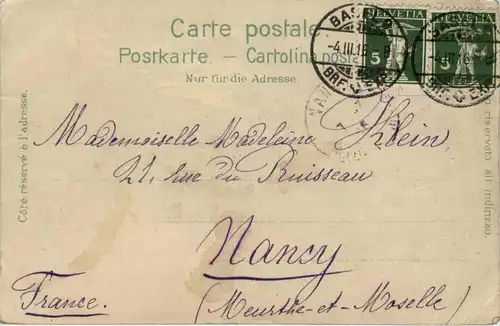 Carte postale
Postkarte. – Cartolina posta
Nur für die Adresse.
BAS
-4.III.16.-8
BRF. EXP.
HELVETIA
5
HELVETIA
Côté réservé à l'adresse.
Mademoiselle Madeleine Klein
21, rue du Ruisseau
Nancy
France.
(Meurthe-et-Moselle)